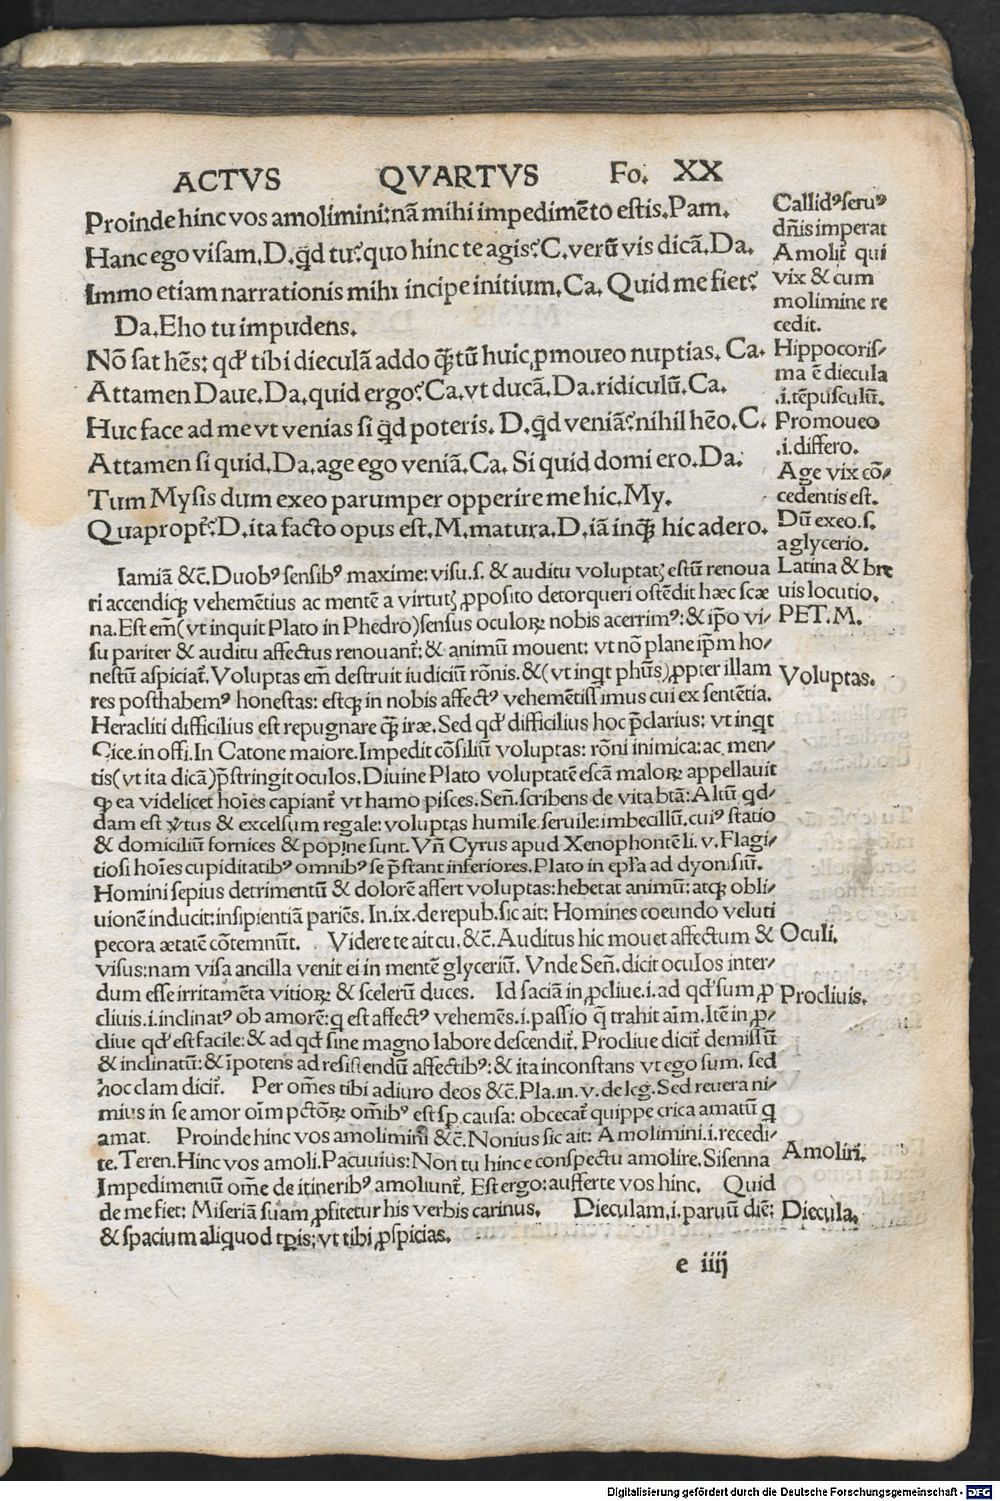 ACTVS QVARTVS Fo. XX
Proinde hinc vos amolimini: nã mihi impedimẽto estis. Pam.
Hanc ego visam. D. qd tu? quo hinc te agis? C. verũ vis dicã. Da.
Immo etiam narrationis mihi incipe initium. Ca. Quid me fiet?
Da. Eho tu impudens.
Nõ sat hẽs: qđ tibi dieculã addo q̃tũ huic ꝓmoueo nuptias. Ca.
Attamen Daue. Da. quid ergo? Ca. vt ducã. Da. ridiculũ. Ca.
Huc face ad me vt venias si qd poteris. D. qd veniã? nihil hẽo. C.
Attamen si quid. Da. age ego veniã. Ca. Si quid domi ero. Da.
Tum Mysis dum exeo parumper opperire me hic. My.
Quapropt̃? D. ita facto opus est. M. matura. D. iã inq̃ hic adero.
Callidꝰ seruꝰ
dñis imperat
Amolit̃ qui
vix & cum
molimine re
cedit.
Hippocoris/
ma ẽ diecula
.i. tẽpusculũ.
Promoueo
.i. differo.
Age vix cõ/
cedentis est.
Dũ exeo. s.
a glycerio.
Latina & bre
uis locutio.
PET. M.
Iamiã &c̃. Duobꝰ sensibꝰ maxime: visu .s. & auditu voluptatꝫ estũ renoua
ri accendiqꝫ vehemẽtius ac mentẽ a virtutꝫ ꝓposito detorqueri ostẽdit hæc scæ
na. Est em̃ (vt inquit Plato in Phedro) sensus oculoꝝ nobis acerrimꝰ: & ip̃o vi/
su pariter & auditu affectus renouant̃: & animũ mouent: vt nõ plane ip̃m ho/
nestũ aspiciat̃. Voluptas em̃ destruit iudiciũ rõnis. & (vt inqt phũs) ꝓpter illam
res posthabemꝰ honestas: estqꝫ in nobis affectꝰ vehemẽtissimus cui ex sentẽtia.
Heracliti difficilius est repugnare q̃ iræ. Sed qđ difficilius hoc p̃clarius: vt inqt
Cice. in offi. In Catone maiore. Impedit cõsiliũ voluptas: rõni inimica: ac men/
tis (vt ita dicã) p̃stringit oculos. Diuine Plato voluptatẽ escã maloꝝ appellauit
ꝙ ea videlicet hoĩes capiant̃ vt hamo pisces. Señ. scribens de vita btã: Altũ qd/
dam est v̓tus & excelsum regale: voluptas humile seruile: imbecillũ, cuiꝰ statio
& domiciliũ fornices & popine sunt. Vñ Cyrus apud Xenophontẽ li. v. Flagi/
tiosi hoĩes cupiditatibꝰ omnibꝰ se p̃stant inferiores. Plato in epl̃a ad dyonisiũ.
Homini sepius detrimentũ & dolorẽ affert voluptas: hebetat animũ: atqꝫ obli/
uionẽ inducit: insipientiã pariẽs. In .ix. de repub. sic ait: Homines coeundo veluti
pecora ætatẽ cõtemnũt. Videre te ait cu. &c̃. Auditus hic mouet affectum &
visus: nam visa ancilla venit ei in mentẽ glyceriũ. Vnde Señ. dicit oculos inter/
dum esse irritamẽta vitioꝝ & scelerũ duces. Id faciã in ꝓcliue .i. ad qđ sum ꝓ
cliuis .i. inclinatꝰ ob amorẽ: q est affectꝰ vehemẽs .i. passio q̃ trahit aĩm. Itẽ in ꝓ/
cliue qđ est facile: & ad qđ sine magno labore descendit̃. Procliue dicit̃ demissũ
& inclinatũ: & ĩpotens ad resistendũ affectibꝰ: & ita inconstans vt ego sum. sed
hoc clam dicit̃. Per oẽs tibi adiuro deos &c̃. Pla. in .v. de leg. Sed reuera ni/
mius in se amor oĩm pctõꝝ oĩbꝰ est sp causa: obcecat̃ quippe circa amatũ q
amat. Proinde hinc vos amolimini &c̃. Nonius sic ait: Amolimini .i. recedi/
te. Teren. Hinc vos amoli. Pacuuius: Non tu hinc e conspectu amolire. Sisenna
Impedimentũ om̃e de itineribꝰ amoliunt̃. Est ergo: aufferte vos hinc. Quid
de me fiet: Miseriã suam ꝓfitetur his verbis carinus. Dieculam .i. paruũ diẽ:
& spacium aliquod tp̃is: vt tibi ꝓspicias.
Voluptas.
Oculi.
Procliuis.
Amoliri.
Diecula.
e iiij
Digitalisierung gefördert durch die Deutsche Forschungsgemeinschaft - DFG